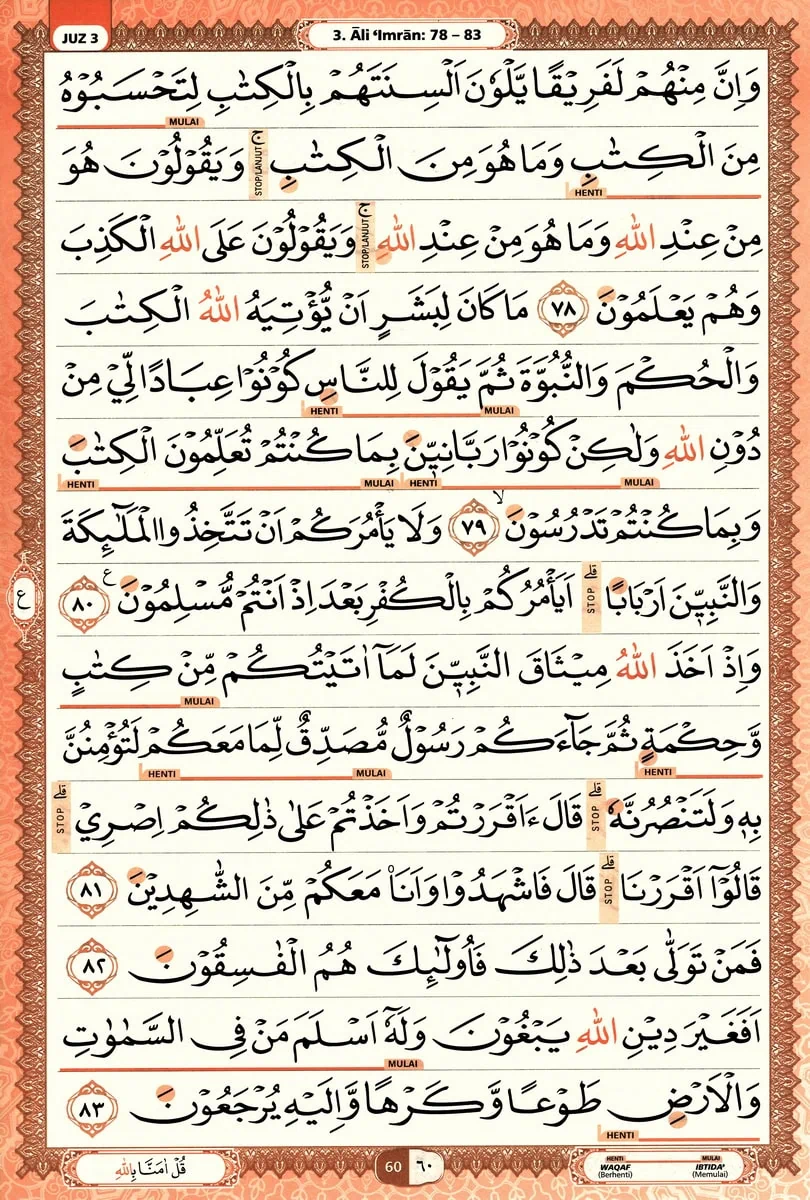 JUZ 3
3. Āli ‘Imrān: 78 – 83
وَاِنَّ مِنْهُمْ لَفَرِيْقًا يَّلْوٗنَ اَلْسِنَتَهُمْ بِالْكِتٰبِ لِتَحْسَبُوْهُ
MULAI
مِنَ الْكِتٰبِ وَمَا هُوَ مِنَ الْكِتٰبِۚ STOP/LANJUT وَيَقُوْلُوْنَ هُوَ
HENTI
مِنْ عِنْدِ اللّٰهِ وَمَا هُوَ مِنْ عِنْدِ اللّٰهِۚ STOP/LANJUT وَيَقُوْلُوْنَ عَلَى اللّٰهِ الْكَذِبَ
وَهُمْ يَعْلَمُوْنَ ٧٨ مَا كَانَ لِبَشَرٍ اَنْ يُّؤْتِيَهُ اللّٰهُ الْكِتٰبَ
وَالْحُكْمَ وَالنُّبُوَّةَ ثُمَّ يَقُوْلَ لِلنَّاسِ كُوْنُوْا عِبَادًا لِّيْ مِنْ
MULAI HENTI
دُوْنِ اللّٰهِ وَلٰكِنْ كُوْنُوْا رَبَّانِيّٖنَ بِمَا كُنْتُمْ تُعَلِّمُوْنَ الْكِتٰبَ
MULAI HENTI MULAI HENTI
وَبِمَا كُنْتُمْ تَدْرُسُوْنَ ۙ ٧٩ وَلَا يَأْمُرَكُمْ اَنْ تَتَّخِذُوا الْمَلٰۤىِٕكَةَ
وَالنَّبِيّٖنَ اَرْبَابًاۗ STOP اَيَأْمُرُكُمْ بِالْكُفْرِ بَعْدَ اِذْ اَنْتُمْ مُّسْلِمُوْنَ ࣖ ٨٠
ع
وَاِذْ اَخَذَ اللّٰهُ مِيْثَاقَ النَّبِيّٖنَ لَمَآ اٰتَيْتُكُمْ مِّنْ كِتٰبٍ
MULAI
وَّحِكْمَةٍ ثُمَّ جَاۤءَكُمْ رَسُوْلٌ مُّصَدِّقٌ لِّمَا مَعَكُمْ لَتُؤْمِنُنَّ
HENTI MULAI HENTI
بِهٖ وَلَتَنْصُرُنَّهٗۗ STOP قَالَ ءَاَقْرَرْتُمْ وَاَخَذْتُمْ عَلٰى ذٰلِكُمْ اِصْرِيْۗ STOP
قَالُوْٓا اَقْرَرْنَاۗ STOP قَالَ فَاشْهَدُوْا وَاَنَا۠ مَعَكُمْ مِّنَ الشّٰهِدِيْنَ ٨١
فَمَنْ تَوَلّٰى بَعْدَ ذٰلِكَ فَاُولٰۤىِٕكَ هُمُ الْفٰسِقُوْنَ ٨٢
اَفَغَيْرَ دِيْنِ اللّٰهِ يَبْغُوْنَ وَلَهٗٓ اَسْلَمَ مَنْ فِى السَّمٰوٰتِ
MULAI
وَالْاَرْضِ طَوْعًا وَّكَرْهًا وَّاِلَيْهِ يُرْجَعُوْنَ ٨٣
HENTI
قُلْ اٰمَنَّا بِاللّٰهِ
60 ٦٠
HENTI MULAI
WAQAF IBTIDA’
(Berhenti) (Memulai)